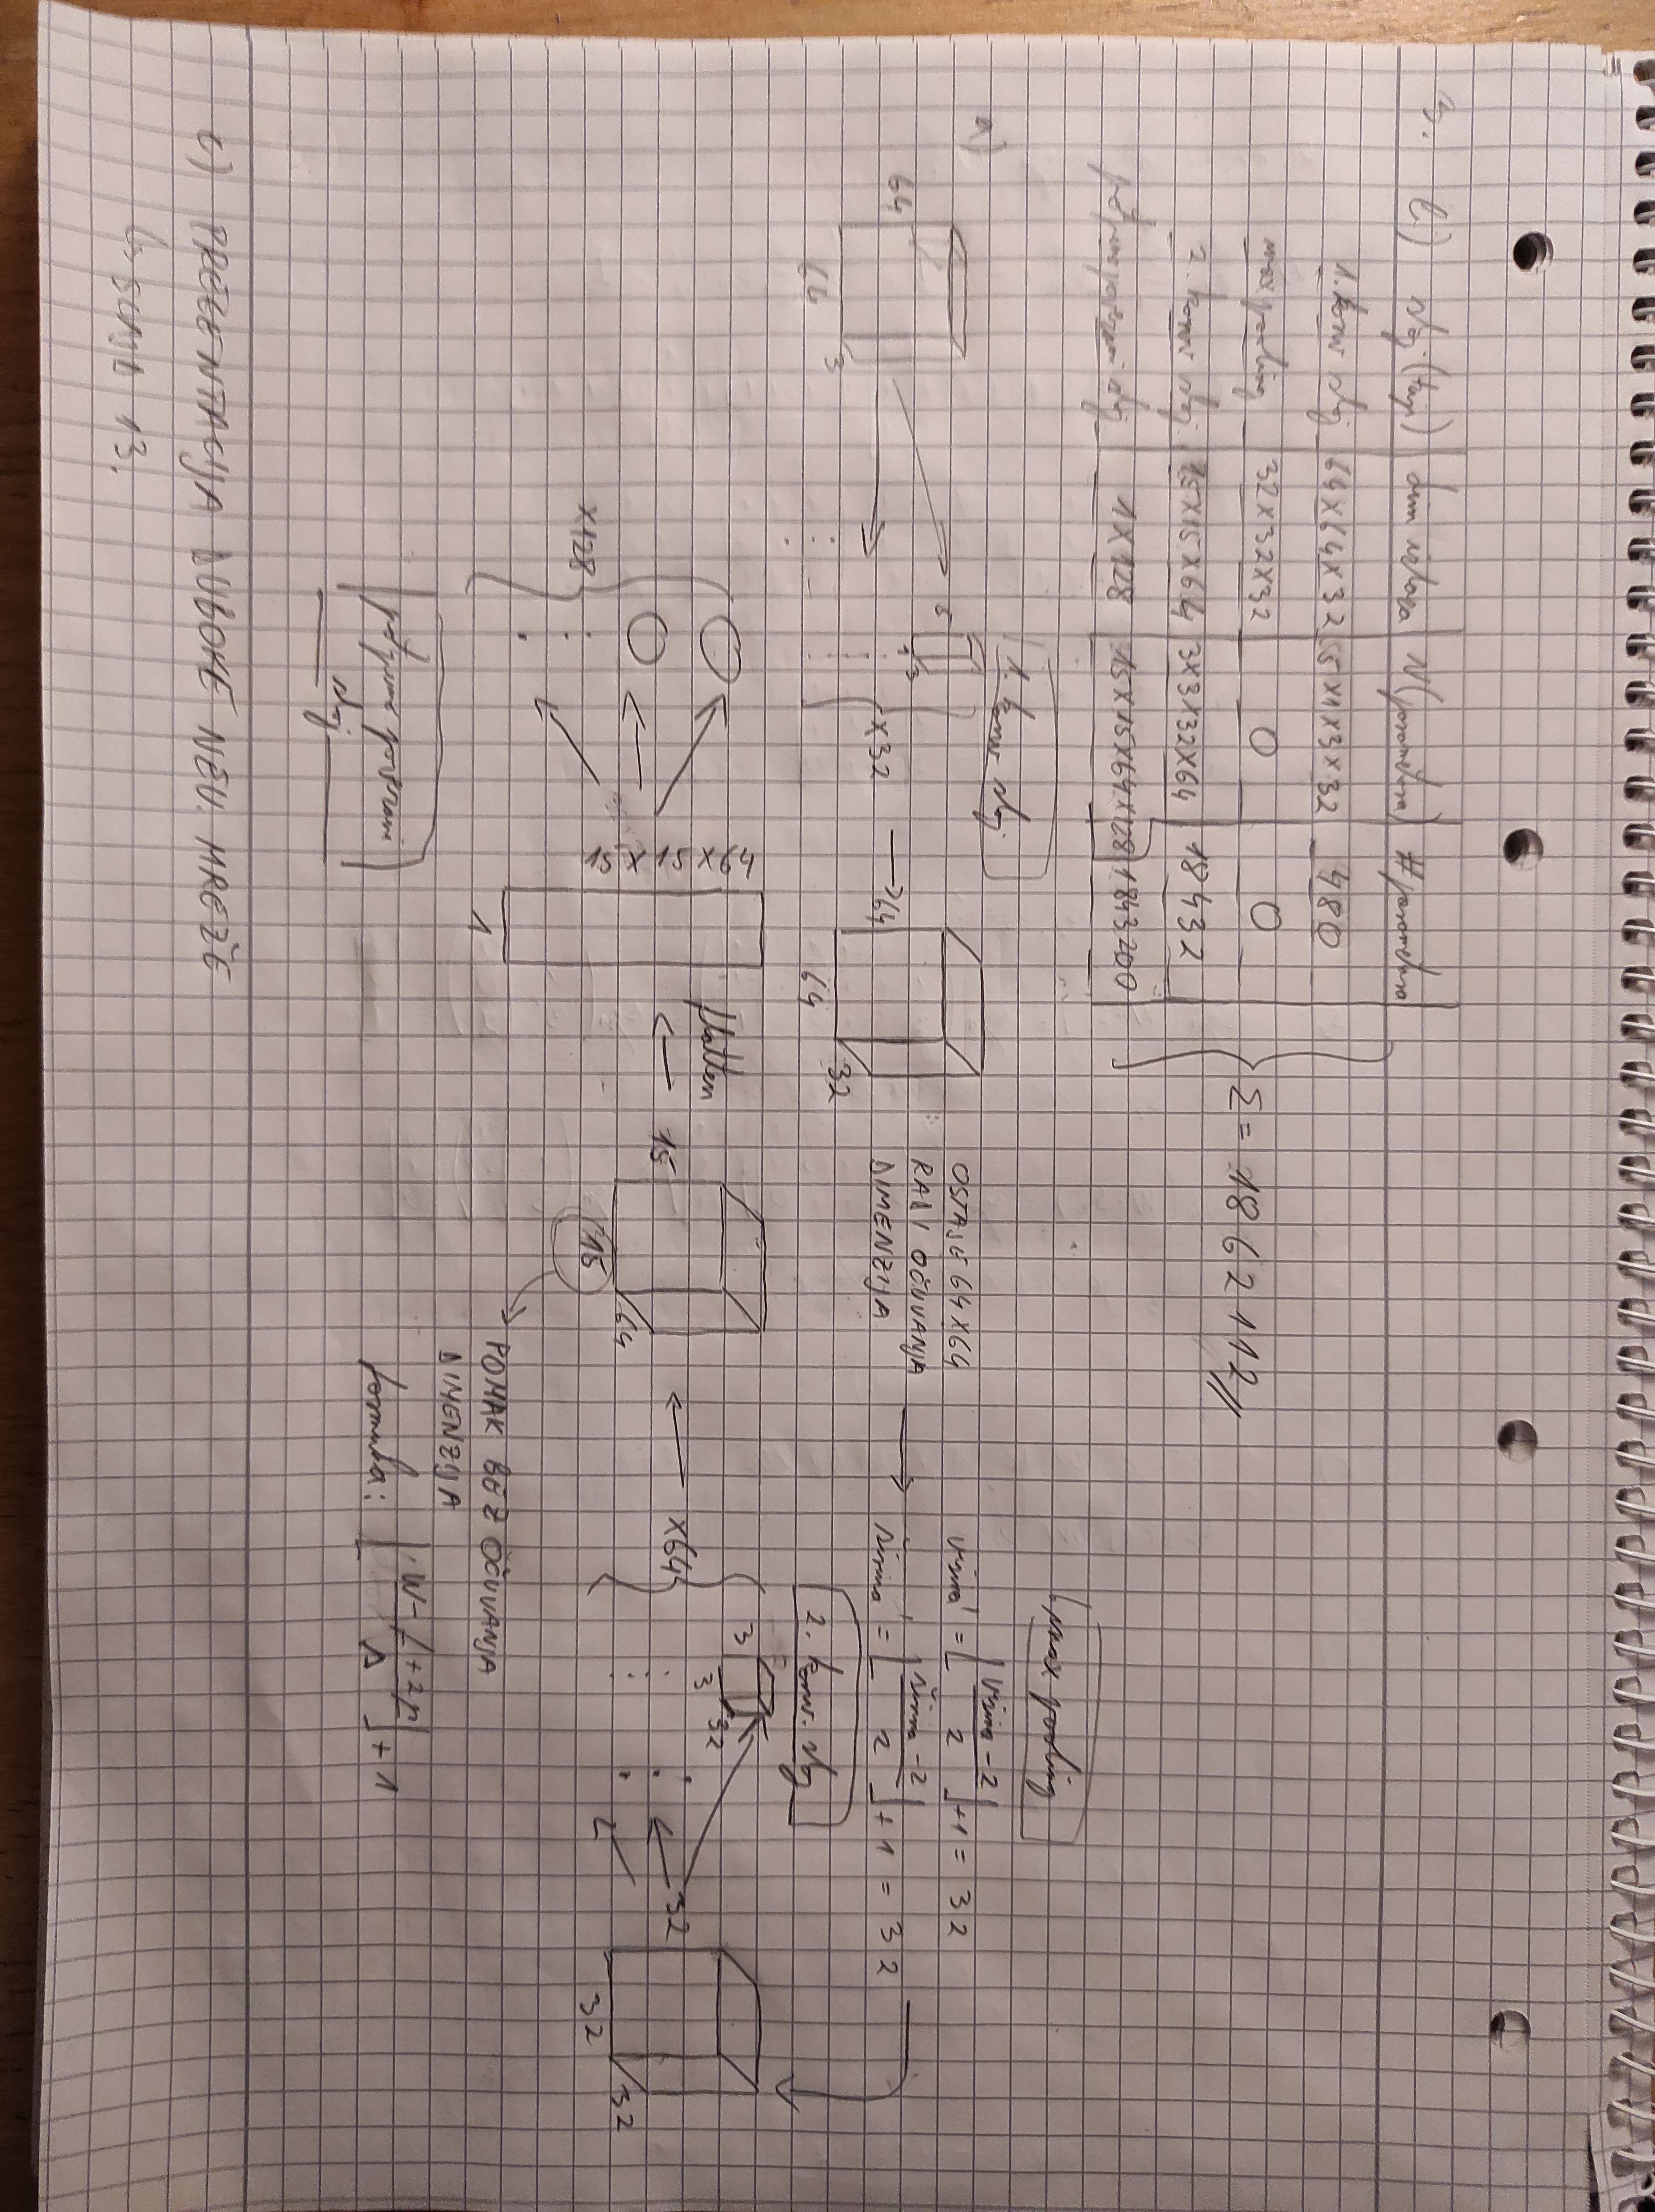 3. b.) sloj (tip) | dim izlaza | N(parametara) | # parametara
1. konv sloj | 64x64x32 | 5x1x3x32 | 480
max pooling | 32x32x32 | 0 | 0
2. konv sloj | 15x15x64 | 3x3x32x64 | 18432
potpunopovezani sloj | 1x128 | 15x15x64x128 | 1843200
Σ = 1862112//
a)
64
64
3
1. konv sloj
5
1
3
x32
64
64
32
OSTAJE 64x64
RADI OČUVANJA
DIMENZIJA
max pooling
visina' = ⌊(visina - 2)/2⌋ + 1 = 32
širina' = ⌊(širina - 2)/2⌋ + 1 = 32
2. konv. sloj
32
32
32
3
3
32
x64
15
15
64
POMAK BEZ OČUVANJA
DIMENZIJA
formula: ⌊(W - f + 2p)/s⌋ + 1
flatten
15x15x64
1
x128
potpuno povezani
sloj
c) PREZENTACIJA DUBOKE NEU. MREŽE
↳ SLAJD 13.